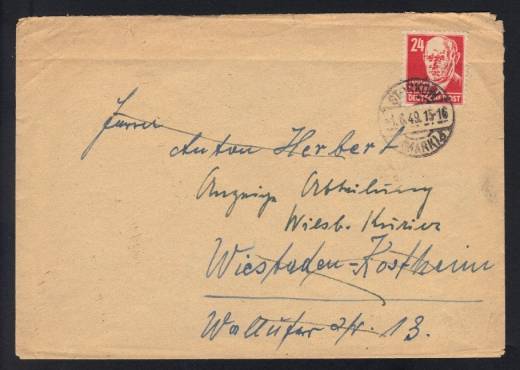 24
DEUTSCHE POST
6.49.15-16
(MARK)4
Herrn
Anton Herbert
Anzeige Abteilung
Wiesb. Kurier
Wiesbaden-Kostheim
Walluferstr. 13.